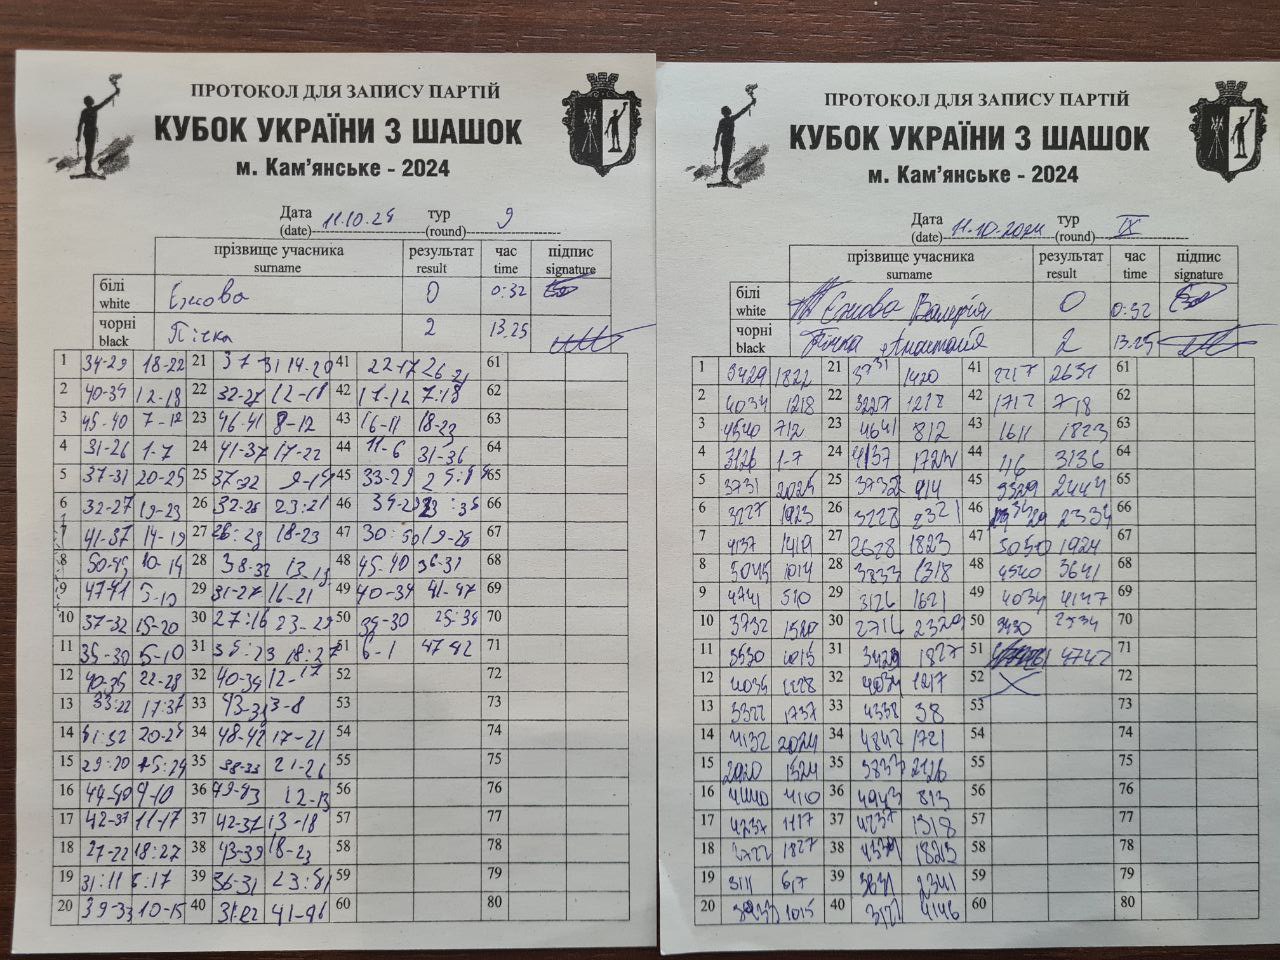 ПРОТОКОЛ ДЛЯ ЗАПИСУ ПАРТІЙ
КУБОК УКРАЇНИ З ШАШОК
м. Кам’янське - 2024
Дата 11.10.24 тур 9
(date) (round)
прізвище учасника результат час підпис
surname result time signature
білі Єжова 0 0:32
white
чорні Пічка 2 13.25
black
1 34-29 18-22 21 37-31 14-20 41 22-17 26-21 61
2 40-34 12-18 22 32-27 12-18 42 17-12 7:18 62
3 45-40 7-12 23 46-41 8-12 43 16-11 18-23 63
4 31-26 1-7 24 41-37 17-22 44 11-6 31-36 64
5 37-31 20-25 25 37-32 9-14 45 33-29 65
6 32-27 19-23 26 32-28 23:21 46 66
7 41-37 14-19 27 26:28 18-23 47 30:50 19-24 67
8 50-45 10-14 28 38-33 13-18 48 45-40 36-31 68
9 47-41 5-10 29 31-27 16-21 49 40-34 41-47 69
10 37-32 15-20 30 27:16 23-29 50 35-30 25:34 70
11 35-30 5-10 31 35:23 18:27 51 6-1 47-42 71
12 40-35 22-28 32 40-34 12-17 52 72
13 33:22 17:37 33 43-38 3-8 53 73
14 41:32 20-24 34 48-42 17-21 54 74
15 29:20 15:24 35 38-33 21-26 55 75
16 44-40 4-10 36 49-43 12-13 56 76
17 42-37 11-17 37 42-37 13-18 57 77
18 27-22 18:27 38 43-39 18-23 58 78
19 31:11 6:17 39 36-31 23:41 59 79
20 39-33 10-15 40 31:22 41-46 60 80
ПРОТОКОЛ ДЛЯ ЗАПИСУ ПАРТІЙ
КУБОК УКРАЇНИ З ШАШОК
м. Кам’янське - 2024
Дата 11.10.2024 тур IX
(date) (round)
прізвище учасника результат час підпис
surname result time signature
білі Єжова Валерія 0 0:32
white
чорні Пічка Анастасія 2 13.25
black
1 3429 1822 21 3731 1420 41 2217 2631 61
2 4034 1218 22 3227 1218 42 1712 718 62
3 4540 712 23 4641 812 43 1611 1823 63
4 3126 1-7 24 4137 1722 44 3136 64
5 3731 2025 25 3732 914 45 3329 2444 65
6 3227 1923 26 3228 2321 46 2334 66
7 4137 1419 27 2628 1823 47 3050 1924 67
8 5045 1014 28 3833 1318 48 4540 3641 68
9 4741 510 29 3126 1621 49 4034 4147 69
10 3732 1520 30 2716 2329 50 3430 2534 70
11 3530 1015 31 3429 1827 51 4742 71
12 4035 2228 32 4034 1217 52 72
13 3322 1737 33 4338 38 53 73
14 4132 2024 34 4842 1721 54 74
15 2920 1524 35 3833 2126 55 75
16 4440 410 36 4943 813 56 76
17 4237 1117 37 4237 1318 57 77
18 2722 1827 38 4339 1823 58 78
19 3111 617 39 3631 2341 59 79
20 3933 1015 40 3122 4146 60 80